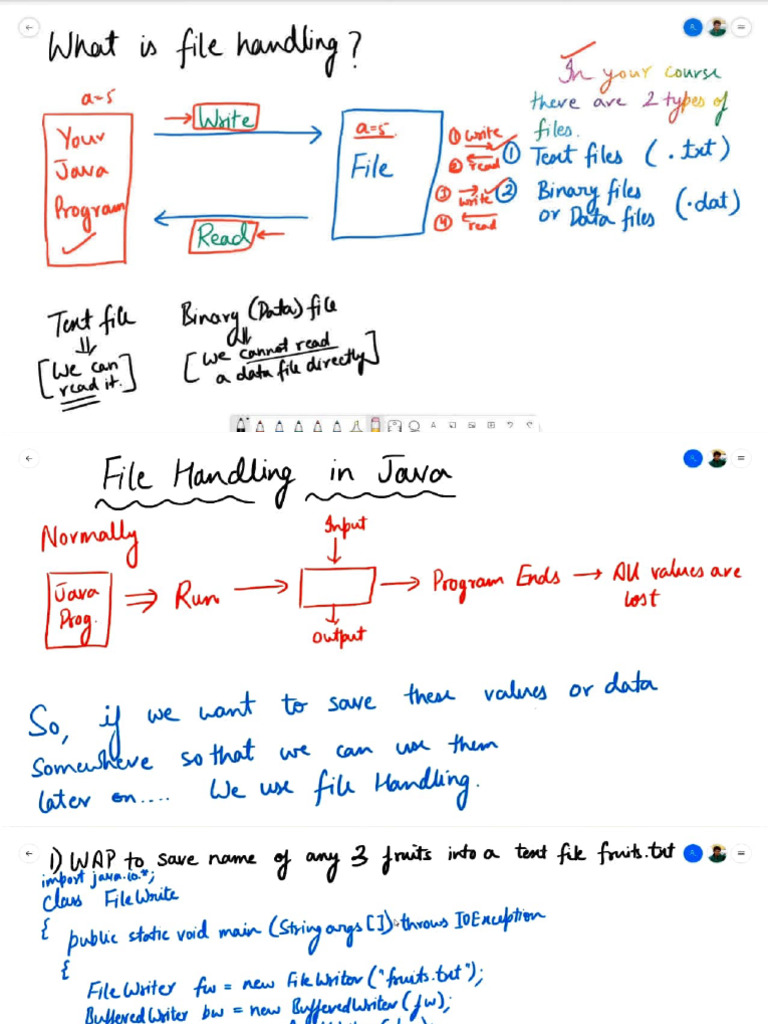 What is file handling?
a=5
Your
Java
Program
Write
Read
a=5
File
① write
② read
③ write
④ read
In your course
there are 2 types of
files.
① Text files (.txt)
② Binary files
or Data files (.dat)
Text file
[We can
read it.]
Binary (Data) file
[We cannot read
a data file directly]
File Handling in Java
Normally
Java
Prog.
Run
Input
Output
Program Ends
All values are
lost
So, if we want to save these values or data
Somewhere so that we can use them
later on.... We use file Handling.
1) WAP to save name of any 3 fruits into a text file fruits.txt
import java.io.*;
class FileWrite
{ public static void main (String args[]) throws IOException
{
FileWriter fw = new FileWriter("fruits.txt");
BufferedWriter bw = new BufferedWriter(fw);